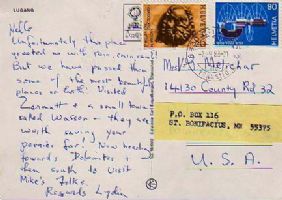 LUGANO
Hello
Unfortunately this place
greeted us with rain,
But we have passed thru
some of the most beautiful
places on Earth! Visited
Zermatt & a small town
called Wassen - they are
worth saving your
pennies for! Now heading
towards Dolomites &
then south to visit
Mike's folks.
Regards Lydia
HELVETIA
HELVETIA
80
M/M Melchar
14130 County Road
P.O. BOX 116
ST. BONIFACIUS, MN 55375
U. S. A.